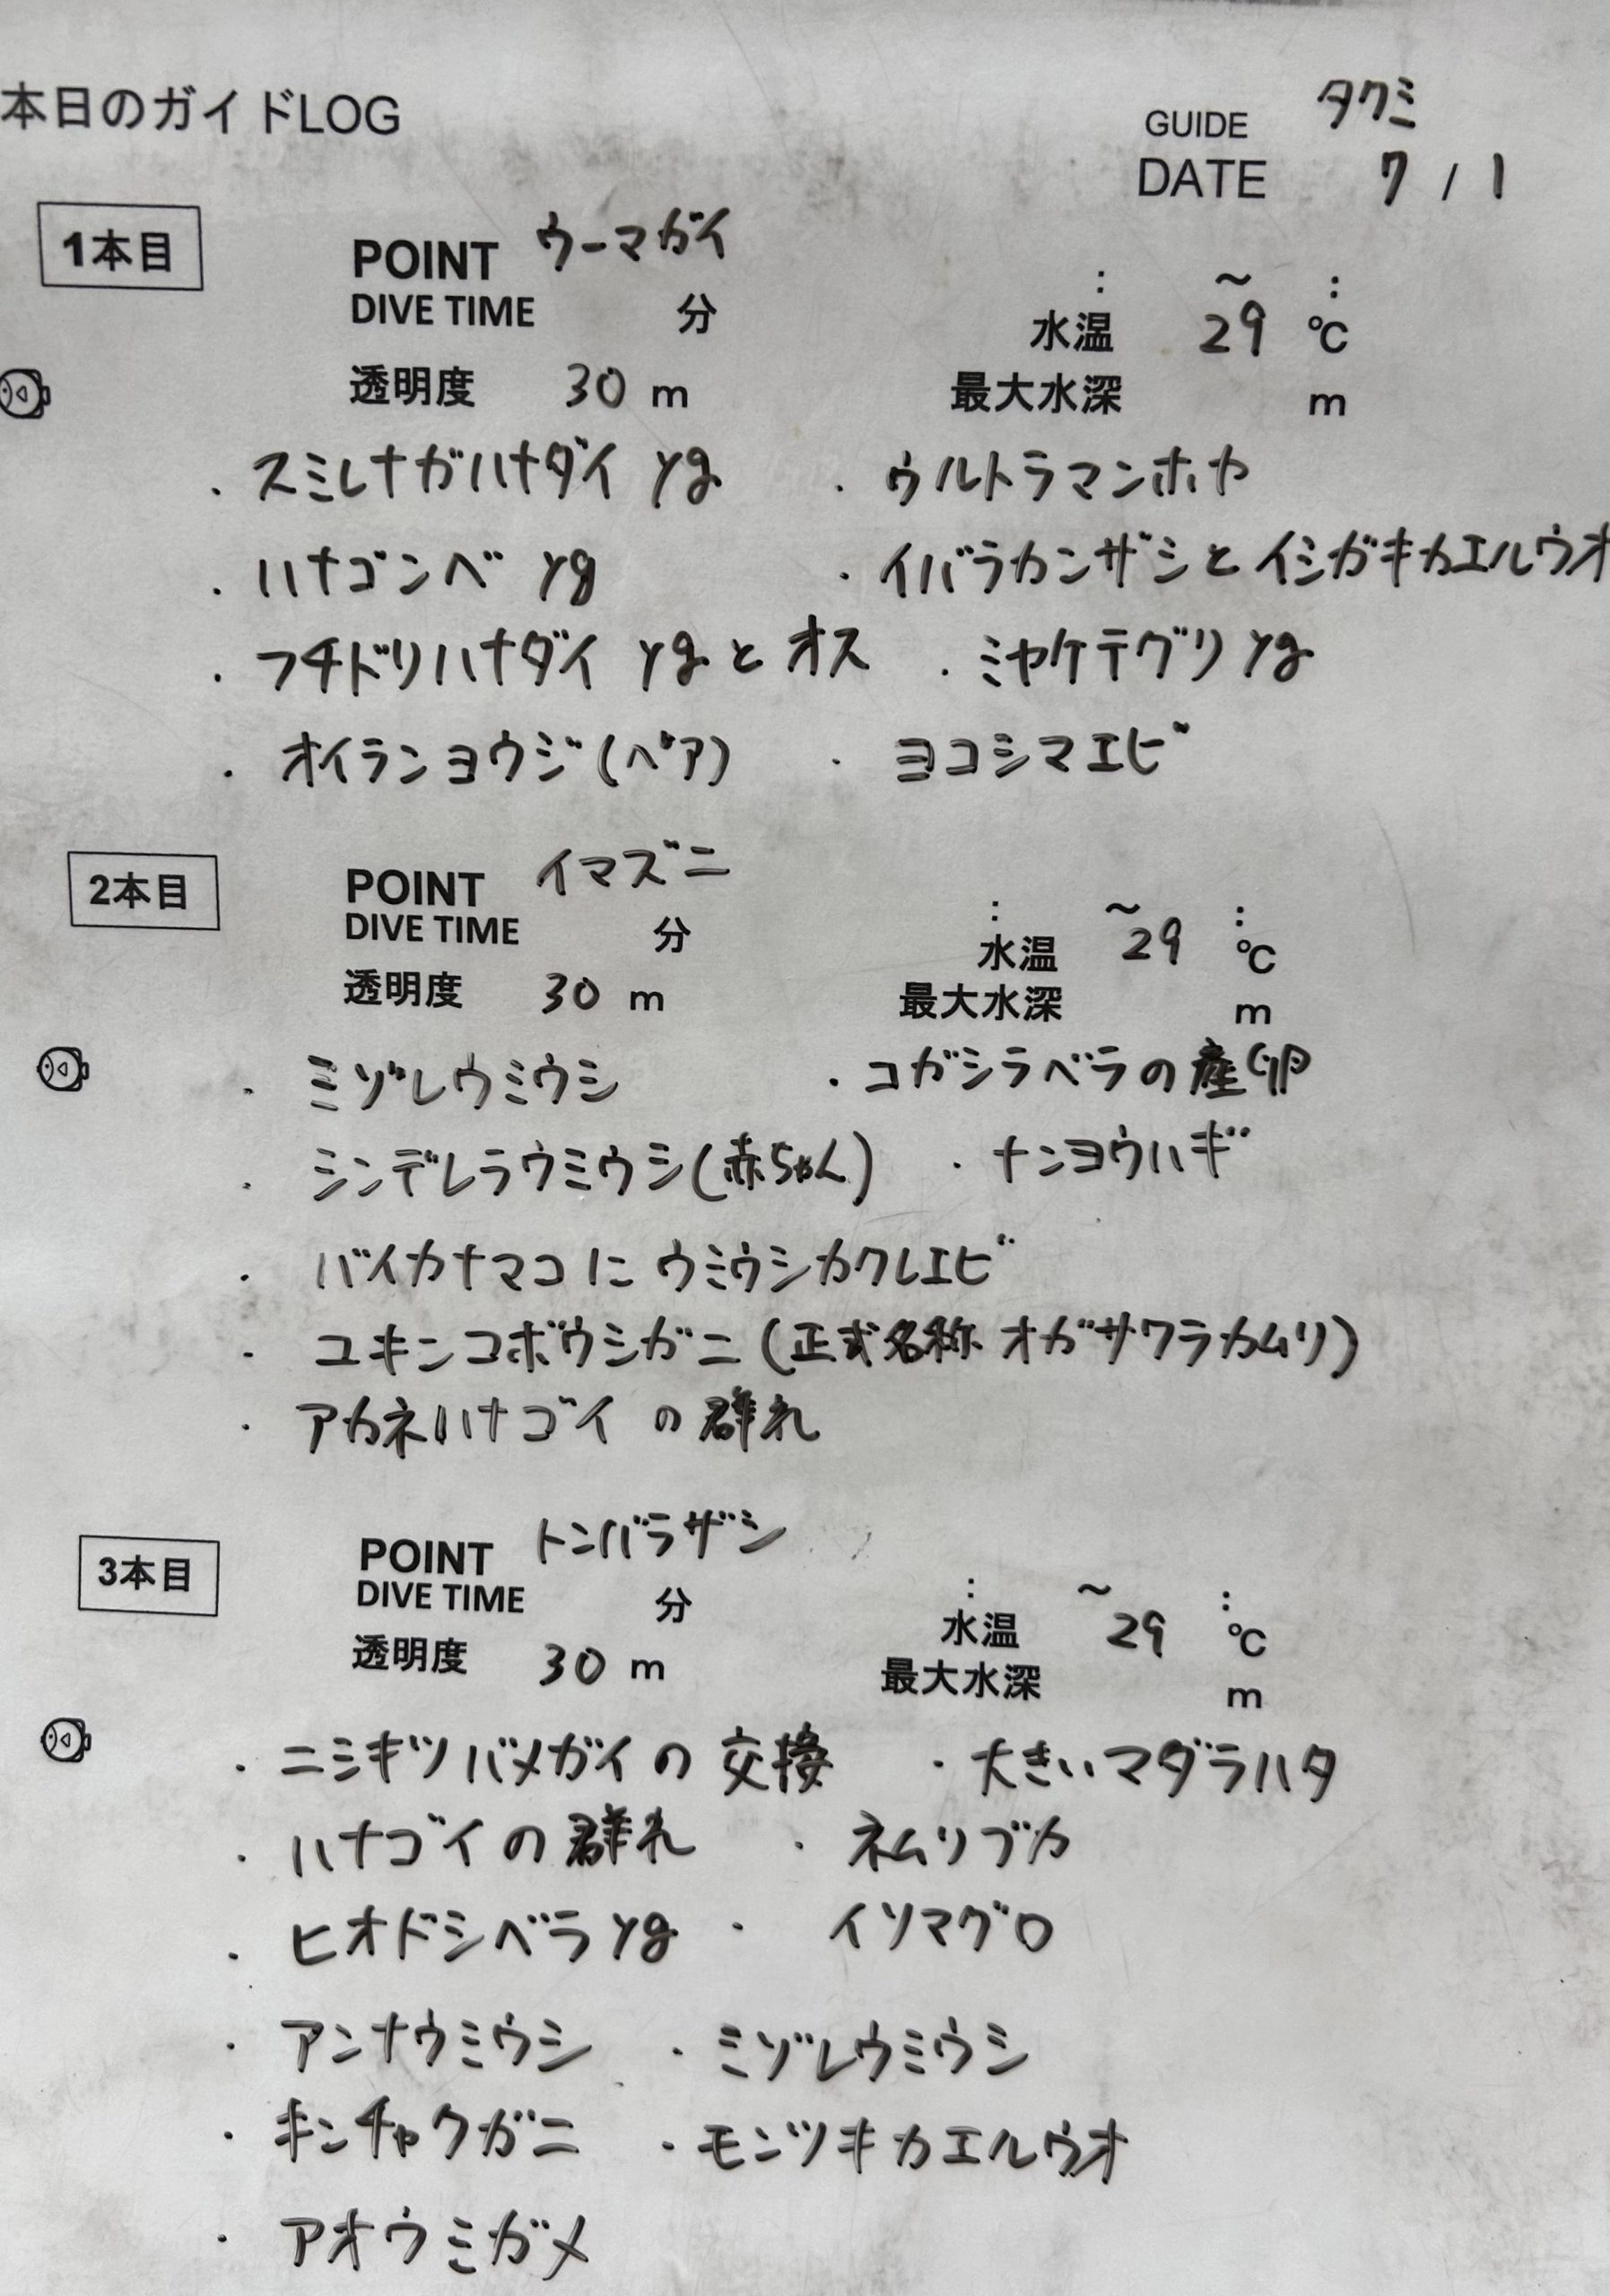 本日のガイドLOG
GUIDE タクミ
DATE 7 / 1
1本目
POINT ウーマガイ
: ～ :
DIVE TIME 分
水温 29 ℃
透明度 30 m
最大水深 m
・スミレナガハナダイ yg ・ウルトラマンホヤ
・ハナゴンベ yg ・イバラカンザシとイシガキカエルウオ
・フチドリハナダイ ygとオス ・ミヤケテグリ yg
・オイランヨウジ(ペア) ・ヨコシマエビ
2本目
POINT イマズニ
: ～ :
DIVE TIME 分
水温 29 ℃
透明度 30 m
最大水深 m
・ミゾレウミウシ ・コガシラベラの産卵
・シンデレラウミウシ(赤ちゃん) ・ナンヨウハギ
・バイカナマコにウミウシカクレエビ
・ユキンコボウシガニ(正式名称 オガサワラカムリ)
・アカネハナゴイの群れ
3本目
POINT トンバラザシ
: ～ :
DIVE TIME 分
水温 29 ℃
透明度 30 m
最大水深 m
・ニシキツバメガイの交接 ・大きいマダラハタ
・ハナゴイの群れ ・ネムリブカ
・ヒオドシベラ yg ・イソマグロ
・アンナウミウシ ・ミゾレウミウシ
・キンチャクガニ ・モンツキカエルウオ
・アオウミガメ